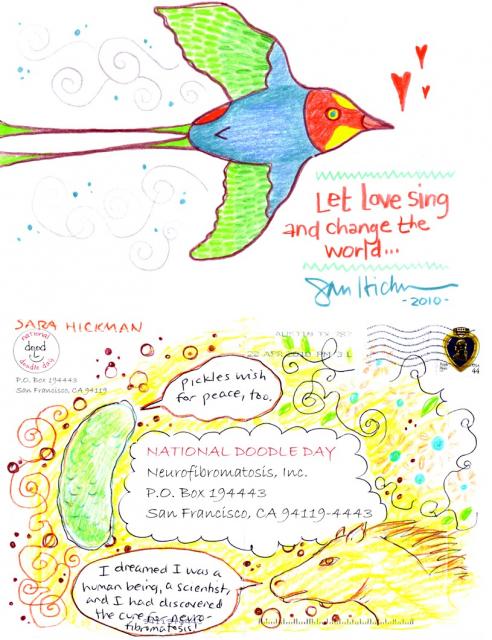 Let love sing
and change the
world...
Sara Hickman
-2010-
SARA HICKMAN
national
doodle day
P.O. Box 194443
San Francisco, CA 94119
AUSTIN TX 787
22 APR 2010 PM 3 L
44
pickles wish
for peace, too.
NATIONAL DOODLE DAY
Neurofibromatosis, Inc.
P.O. Box 194443
San Francisco, CA 94119-4443
I dreamed I was a
human being, a scientist,
and I had discovered
the cure for neuro-
fibromatosis!